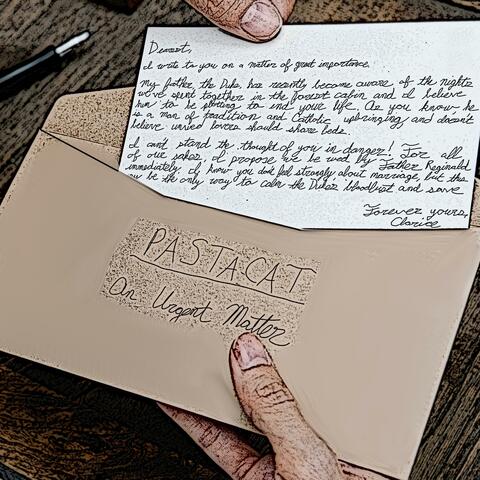 Dearest,
I write to you on a matter of great importance.
My father, the Duke, has recently become aware of the nights
we've spent together in the forest cabin and I believe
him to be plotting to end your life. As you know he
is a man of tradition and Catholic upbringing and doesn't
believe unwed lovers should share beds.
I can't stand the thought of you in danger! For all
of our sakes, I propose we be wed by Father Reginald
immediately. I know you don't feel strongly about marriage, but this
be the only way to calm the Duke's bloodlust and save
Forever yours,
Clarice
PASTACAT
An Urgent Matter